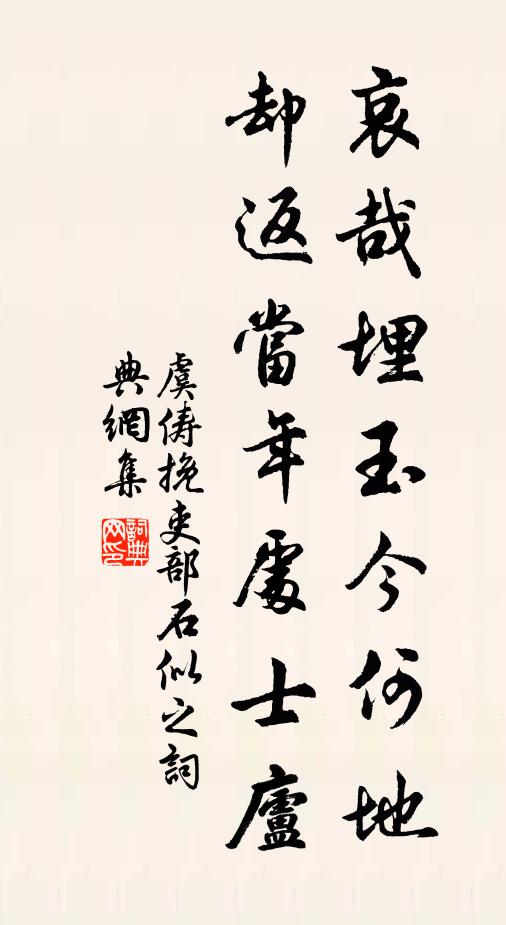 哀哉埋玉今何地
却返當年處士廬
虞儔挽吏部石似之詞
典網集
詞典网印